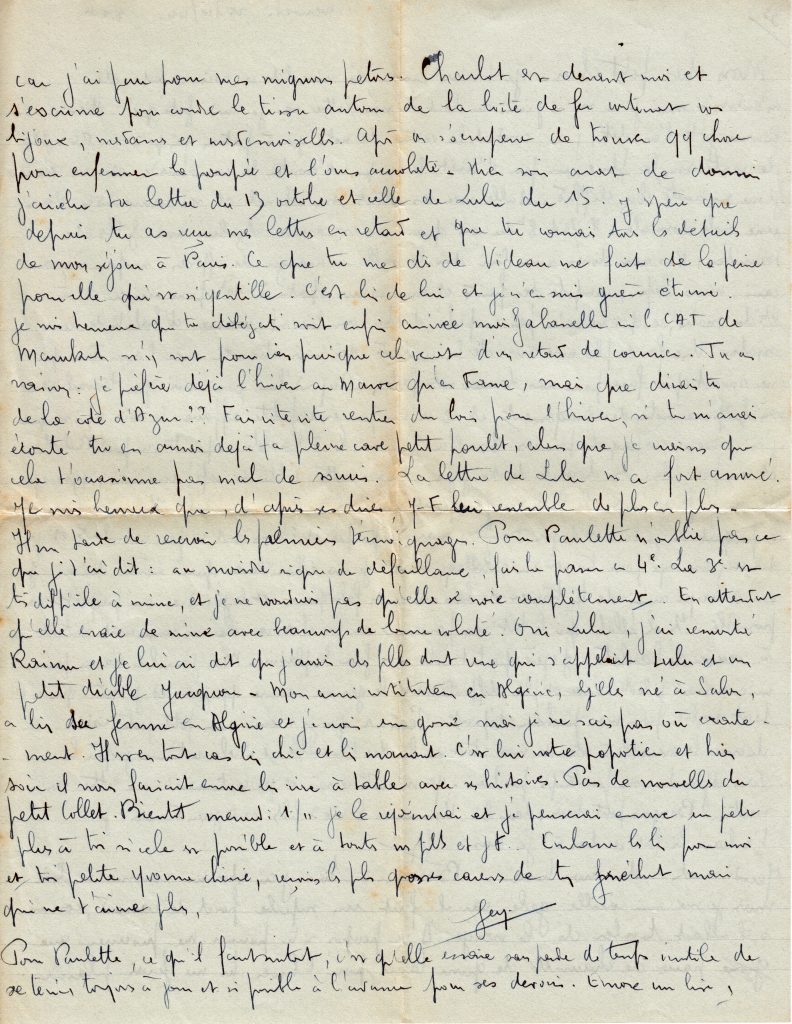 car j'ai peur pour mes mignons petits. Charlot est devant moi et
s'escrime pour coudre le tissu autour de la boîte de fer contenant vos
bijoux, mesdames et mesdemoiselles. Après on s'occupera de trouver qq chose
pour enfermer la poupée et l'ours acrobate. Hier soir avant de dormir
j'ai relu ta lettre du 13 octobre et celle de Lulu du 15. J'espère que
depuis tu as reçu mes lettres en retard et que tu connais tous les détails
de mon séjour à Paris. Ce que tu me dis de Videau me fait de la peine
pour elle qui est si gentille. C'est bien de lui et je n'en suis guère étonné.
Je suis heureux que ta délégation soit enfin arrivée mais ni l CAT de
Marrakech n'y sont pour rien puisque cela venait d'un retard de courrier. Tu as
raison : je préfère déjà l'hiver au Maroc qu'en France, mais que dirais tu
de la côte d'Azur ?? Fais vite vite rentrer du bois pour l'hiver, si tu m'avais
écouté tu en aurais déjà ta pleine cave petit poulet, alors que je crains que
cela t'occasionne pas mal de soucis. La lettre de Lulu m'a fort amusé.
Je suis heureux que, d'après ses dires J-F lui ressemble de plus en plus.
Il me tarde de recevoir les premiers témoignages. Pour Paulette n'oublie pas ce
que je t'ai dit : au moindre signe de défaillance, fais la passer en 4e. La 3e est
très difficile à suivre, et je ne voudrais pas qu'elle se noie complètement. En attendant
qu'elle essaie de suivre avec beaucoup de bonne volonté. Oui Lulu, j'ai rencontré
Raimu et je lui ai dit que j'avais des filles dont une qui s'appelait Lulu et un
petit diable Jacquou. Mon ami instituteur en Algérie, Gilles né à Salon,
a bien sa femme en Algérie et je crois un gosse mais je ne sais pas où exacte-
-ment. Il est en tout cas bien chic et bien marrant. C'est lui notre popotier et hier
soir il nous faisait encore bien rire à table avec ses histoires. Pas de nouvelles du
petit Collet. Bientôt mercredi 1/11 je le rejoindrai et je penserai encore un peu
plus à toi si cela est possible et à toutes nos filles et JF. Embrasse les bien pour moi
et toi petite Yvonne chérie, reçois les plus grosses caresses de ton mari
qui ne t'aime plus,
Guy
Pour Paulette, ce qu'il faut surtout, c'est qu'elle essaie sans perte de temps inutile de
se tenir toujours à jour et si possible à l'avance pour ses devoirs. Encore un bise,